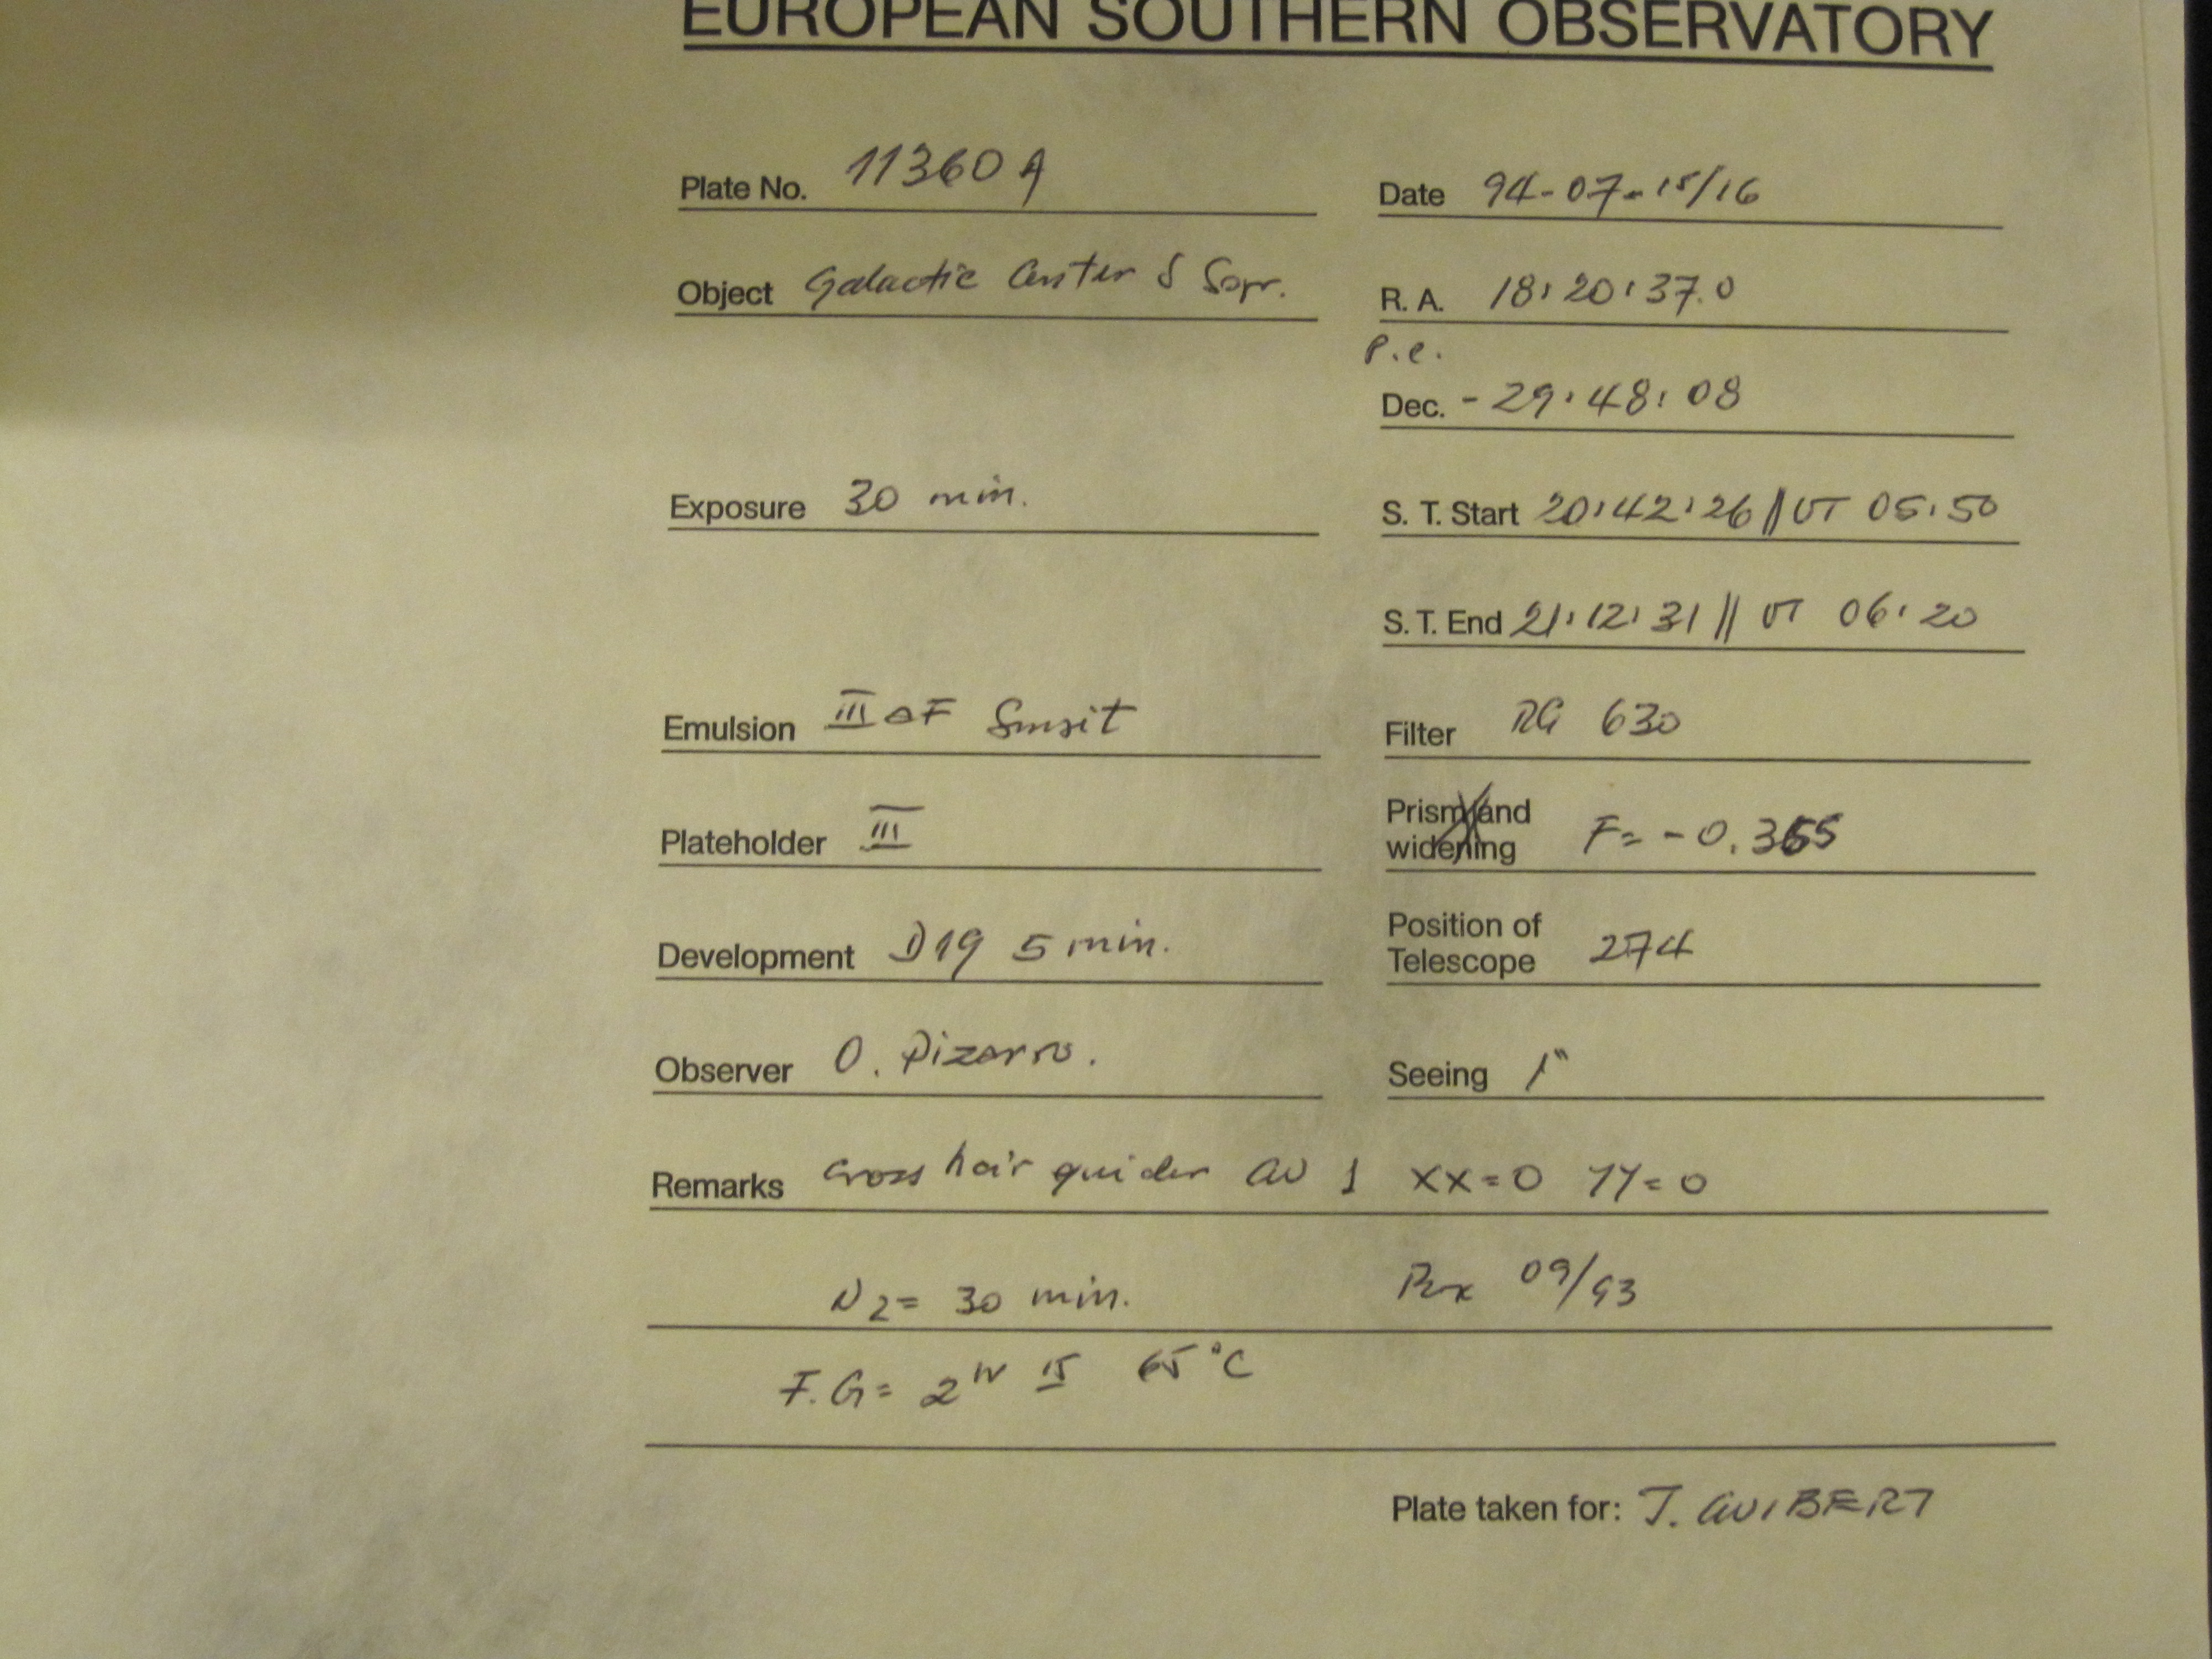 EUROPEAN SOUTHERN OBSERVATORY
Plate No. 11360 A
Date 94-07-15/16
Object Galactic Center & Sgr.
R. A. 18:20:37.0
P.e.
Dec. -29:48:08
Exposure 30 min.
S. T. Start 20:42:26 || UT 05:50
S. T. End 21:12:31 || UT 06:20
Emulsion III aF Sensit
Filter RG 630
Plateholder III
Prism and widening F= -0.355
Development D19 5 min.
Position of Telescope 274
Observer O. Pizarro.
Seeing 1"
Remarks Cross hair guider 1 XX=0 YY=0
N2= 30 min. 09/93
F.G= 2 65°C
Plate taken for: J. GUIBERT